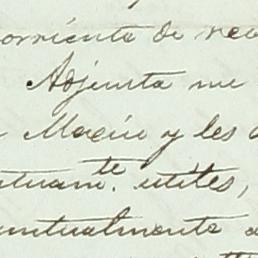 corriente de rec
Adjunta me
Macín y les
tuam.te utiles,
untualmente